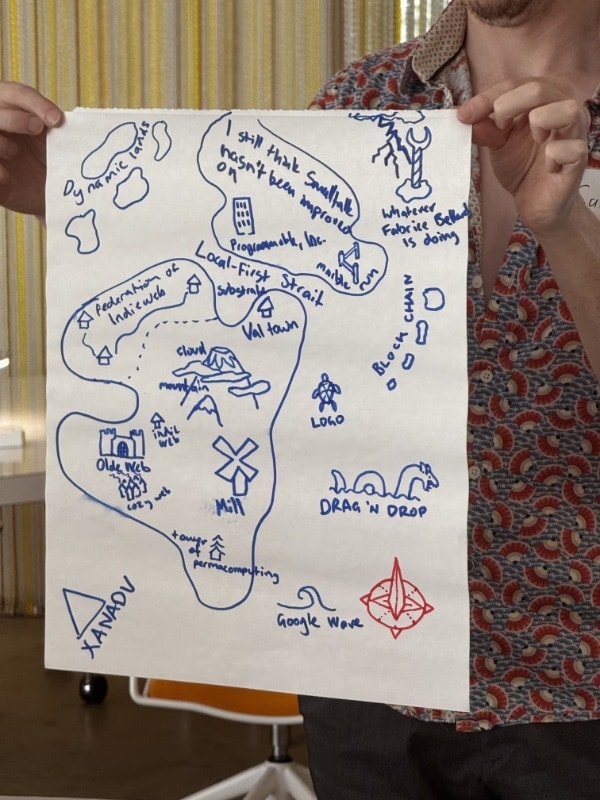 Dynamic lands
I still think Smalltalk
hasn't been improved
on
Programmable, Inc.
marble run
Whatever
Fabrice Bellard
is doing
Local-First Strait
Substrate
Federation of
Indieweb
Val town
BLOCK CHAIN
cloud
mountain
LOGO
indie
web
Olde Web
cozy web
Mill
DRAG 'N DROP
tower
of
permacomputing
XANADU
Google Wave